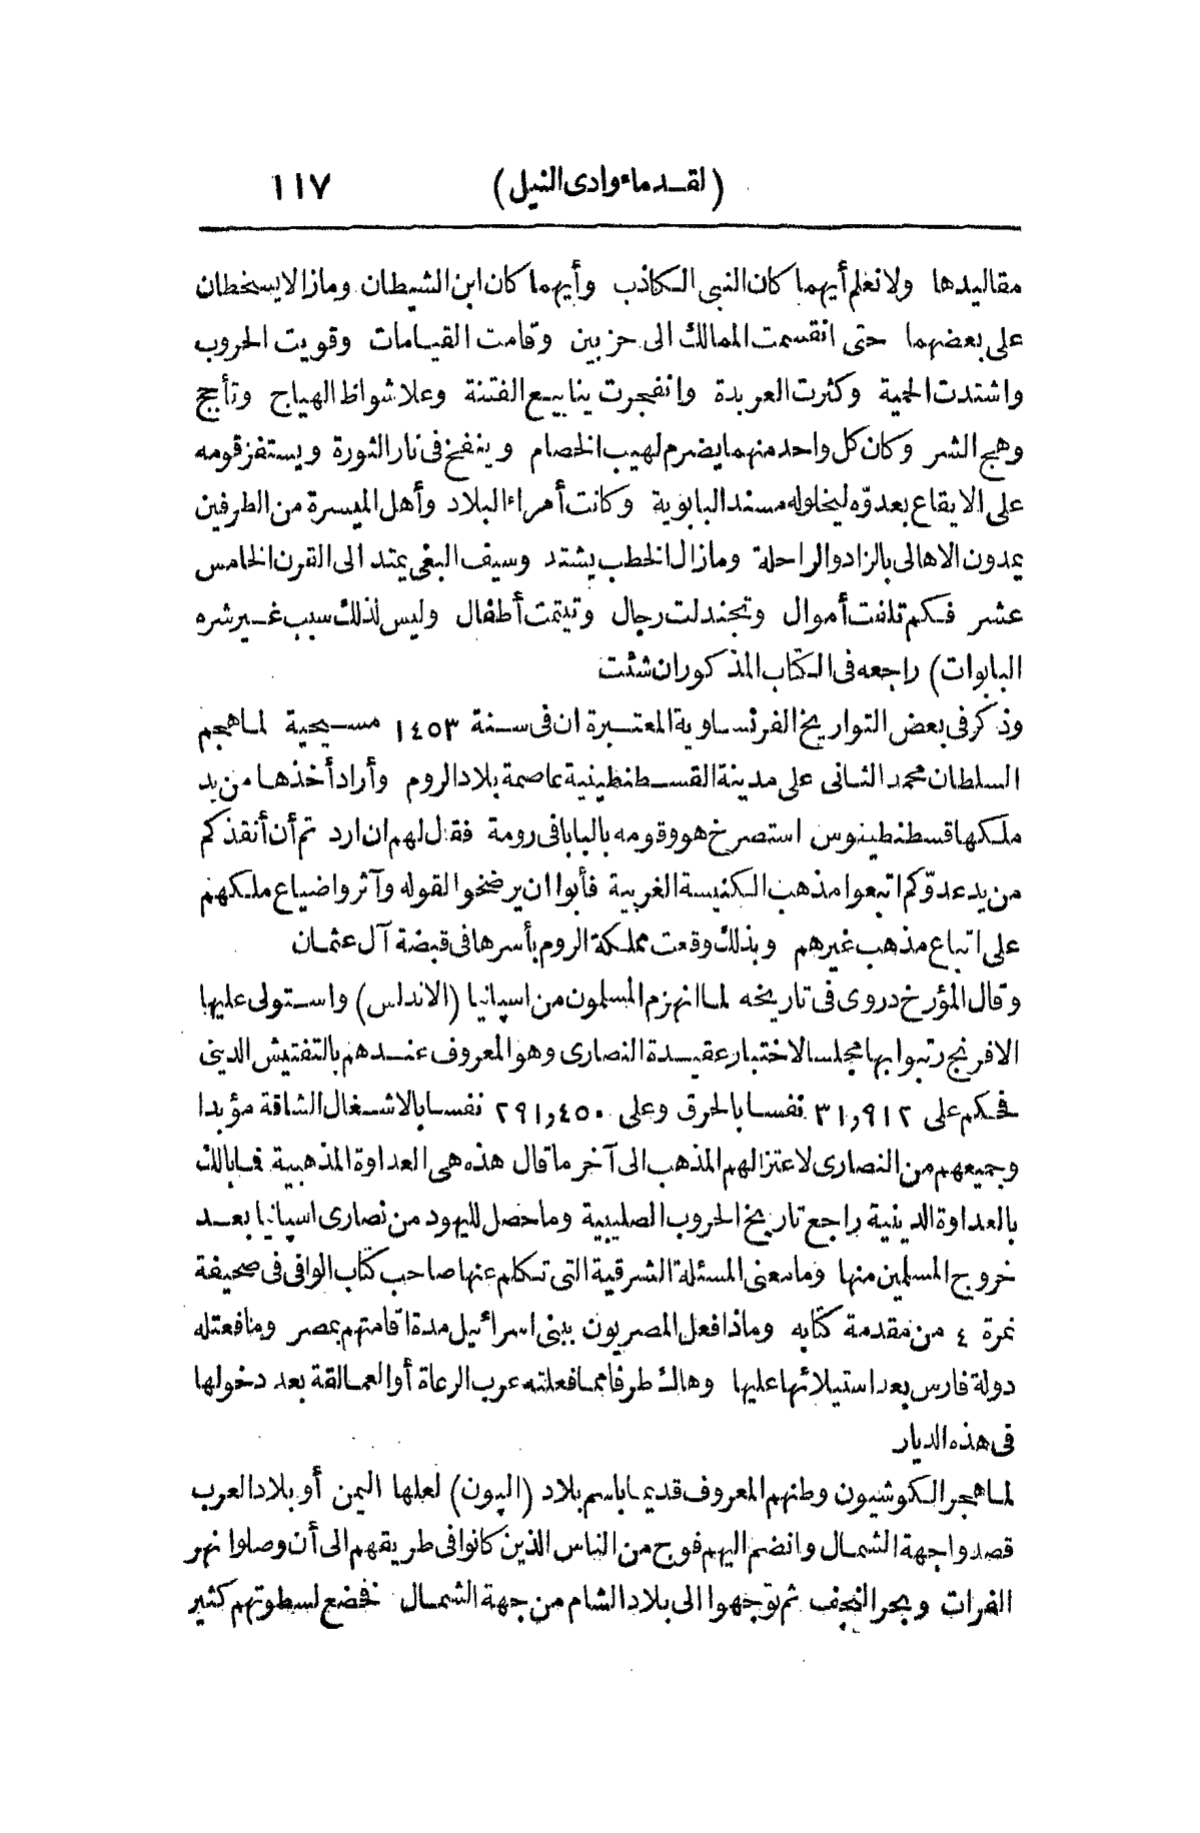 (لقدماء وادى النيل) ١١٧
مقاليدها ولا نعلم أيهما كان النبى الكاذب وأيهما كان ابن الشيطان ومازالا يسخطان
على بعضهما حتى انقسمت الممالك الى حزبين وقامت القيامات وقويت الحروب
واشتدت الحمية وكثرت العربدة وانفجرت ينابيع الفتنة وعلا شواظ الهياج وتأجج
وهج الشر وكان كل واحد منهما يضرم لهيب الخصام وينفخ فى نار الثورة ويستفز قومه
على الايقاع بعدوّه ليخلوله مسند البابوية وكانت أمراء البلاد وأهل الميسرة من الطرفين
يمدون الاهالى بالزاد والراحلة ومازال الخطب يشتد وسيف البغى يمتد الى القرن الخامس
عشر فكم تلفت أموال وتجندلت رجال وتيتمت أطفال وليس لذلك سبب غير شره
البابوات) راجعه فى الكتاب المذكور ان شئت
وذكر فى بعض التواريخ الفرنساوية المعتبرة ان فى سنة ١٤٥٣ مسيحية لما هجم
السلطان محمد الثانى على مدينة القسطنطينية عاصمة بلاد الروم وأراد أخذها من يد
ملكها قسطنطينوس استصرخ هو وقومه بالبابا فى رومة فقال لهم ان اردتم أن أنقذكم
من يد عدوّكم اتبعوا مذهب الكنيسة الغربية فأبوا ان يرضخوا لقوله وآثروا ضياع ملكهم
على اتباع مذهب غيرهم وبذلك وقعت مملكة الروم بأسرها فى قبضة آل عثمان
وقال المؤرخ دروى فى تاريخه لما انهزم المسلمون من اسپانيا (الاندلس) واستولى عليها
الافرنج رتبوا بها مجلسا لاختبار عقيدة النصارى وهو المعروف عندهم بالتفتيش الدينى
فحكم على ٣١,٩١٢ نفسا بالحرق وعلى ٢٩١,٤٥٠ نفسا بالاشغال الشاقة مؤبدا
وجميعهم من النصارى لاعتزالهم المذهب الى آخر ما قال هذه هى العداوة المذهبية فما بالك
بالعداوة الدينية راجع تاريخ الحروب الصليبية وما حصل لليهود من نصارى اسپانيا بعد
خروج المسلمين منها وما معنى المسئلة الشرقية التى تكلم عنها صاحب كتاب الوافى فى صحيفة
نمرة ٤ من مقدمة كتابه وماذا فعل المصريون ببنى اسرائيل مدة اقامتهم بمصر وما فعلته
دولة فارس بعد استيلائها عليها وهاك طرفا مما فعلته عرب الرعاة أو العمالقة بعد دخولها
فى هذه الديار
لما هجر الكوشيون وطنهم المعروف قديما باسم بلاد (الپون) لعلها اليمن أو بلاد العرب
قصدوا جهة الشمال وانضم اليهم فوج من الناس الذين كانوا فى طريقهم الى أن وصلوا نهر
الفرات وبحر النجف ثم توجهوا الى بلاد الشام من جهة الشمال فخضع لسطوتهم كثير